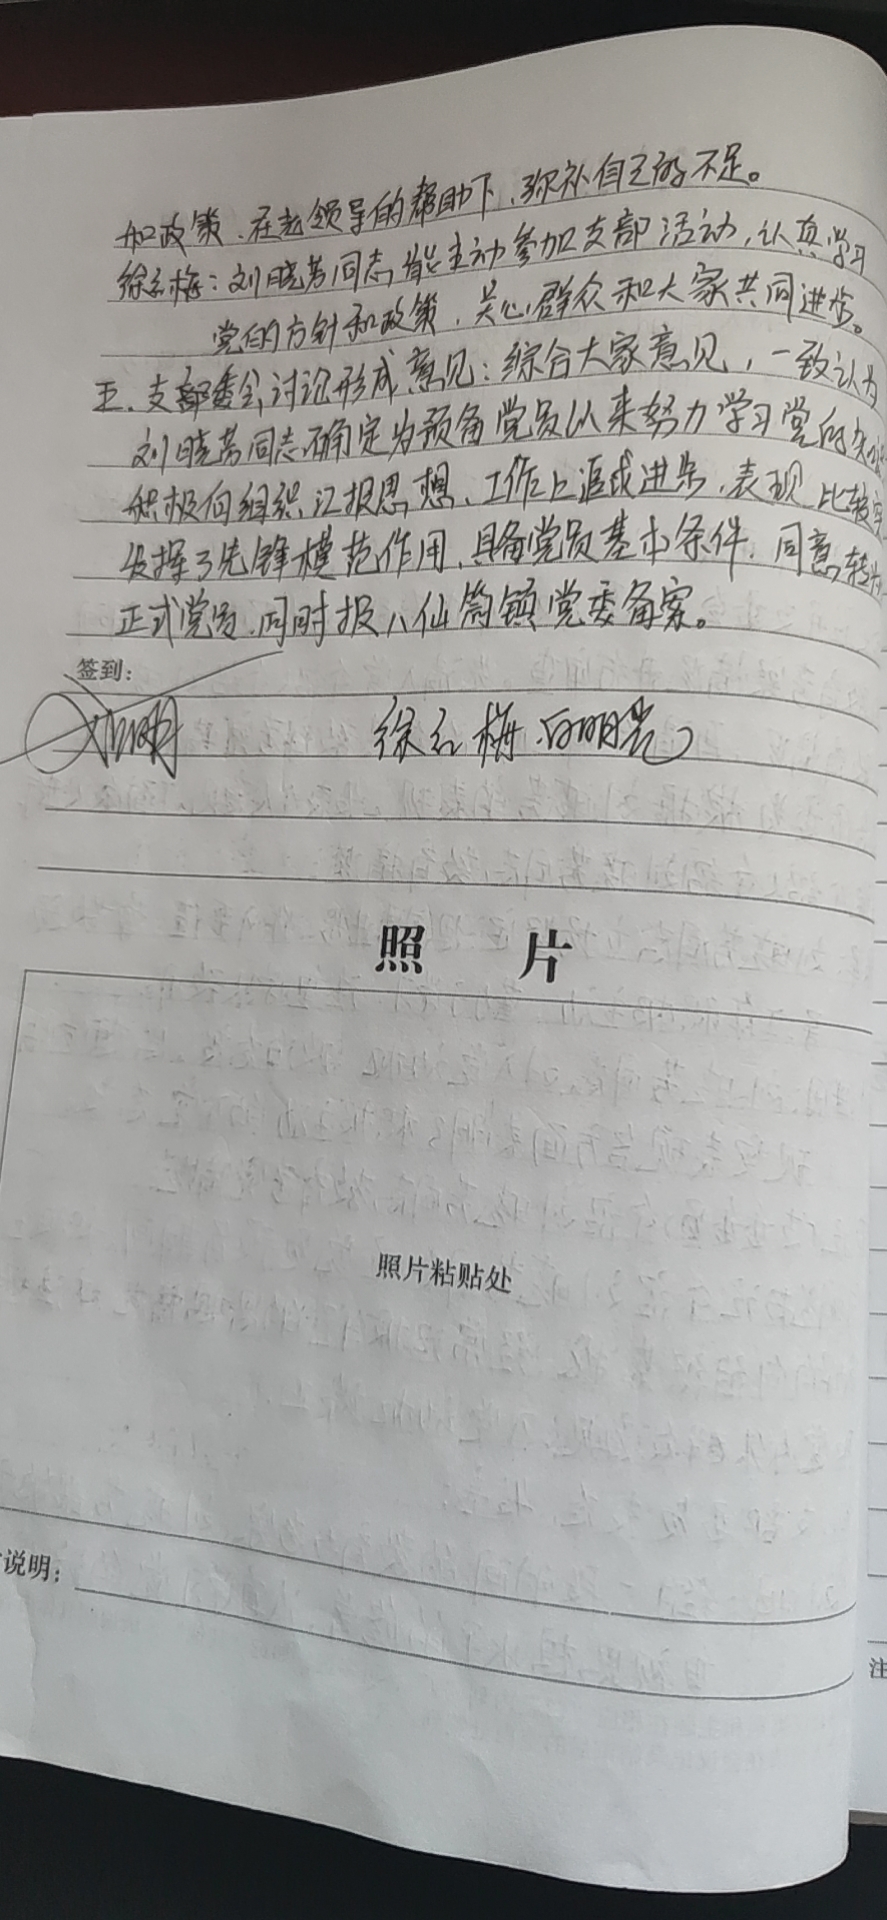 和政策、在老领导的帮助下、弥补自己的不足。
徐红梅：刘晓芳同志能主动参加支部活动，认真学习
党的方针和政策，关心群众和大家共同进步。
五、支部委会讨论形成意见：综合大家意见，一致认为
刘晓芳同志确定为预备党员以来努力学习党的知识
积极向组织汇报思想、工作上追求进步，表现比较突
发挥了先锋模范作用，具备党员基本条件，同意转为
正式党员，同时报八仙筒镇党委备案。
签到：
徐红梅 白明光
照 片
照片粘贴处
说明：
注